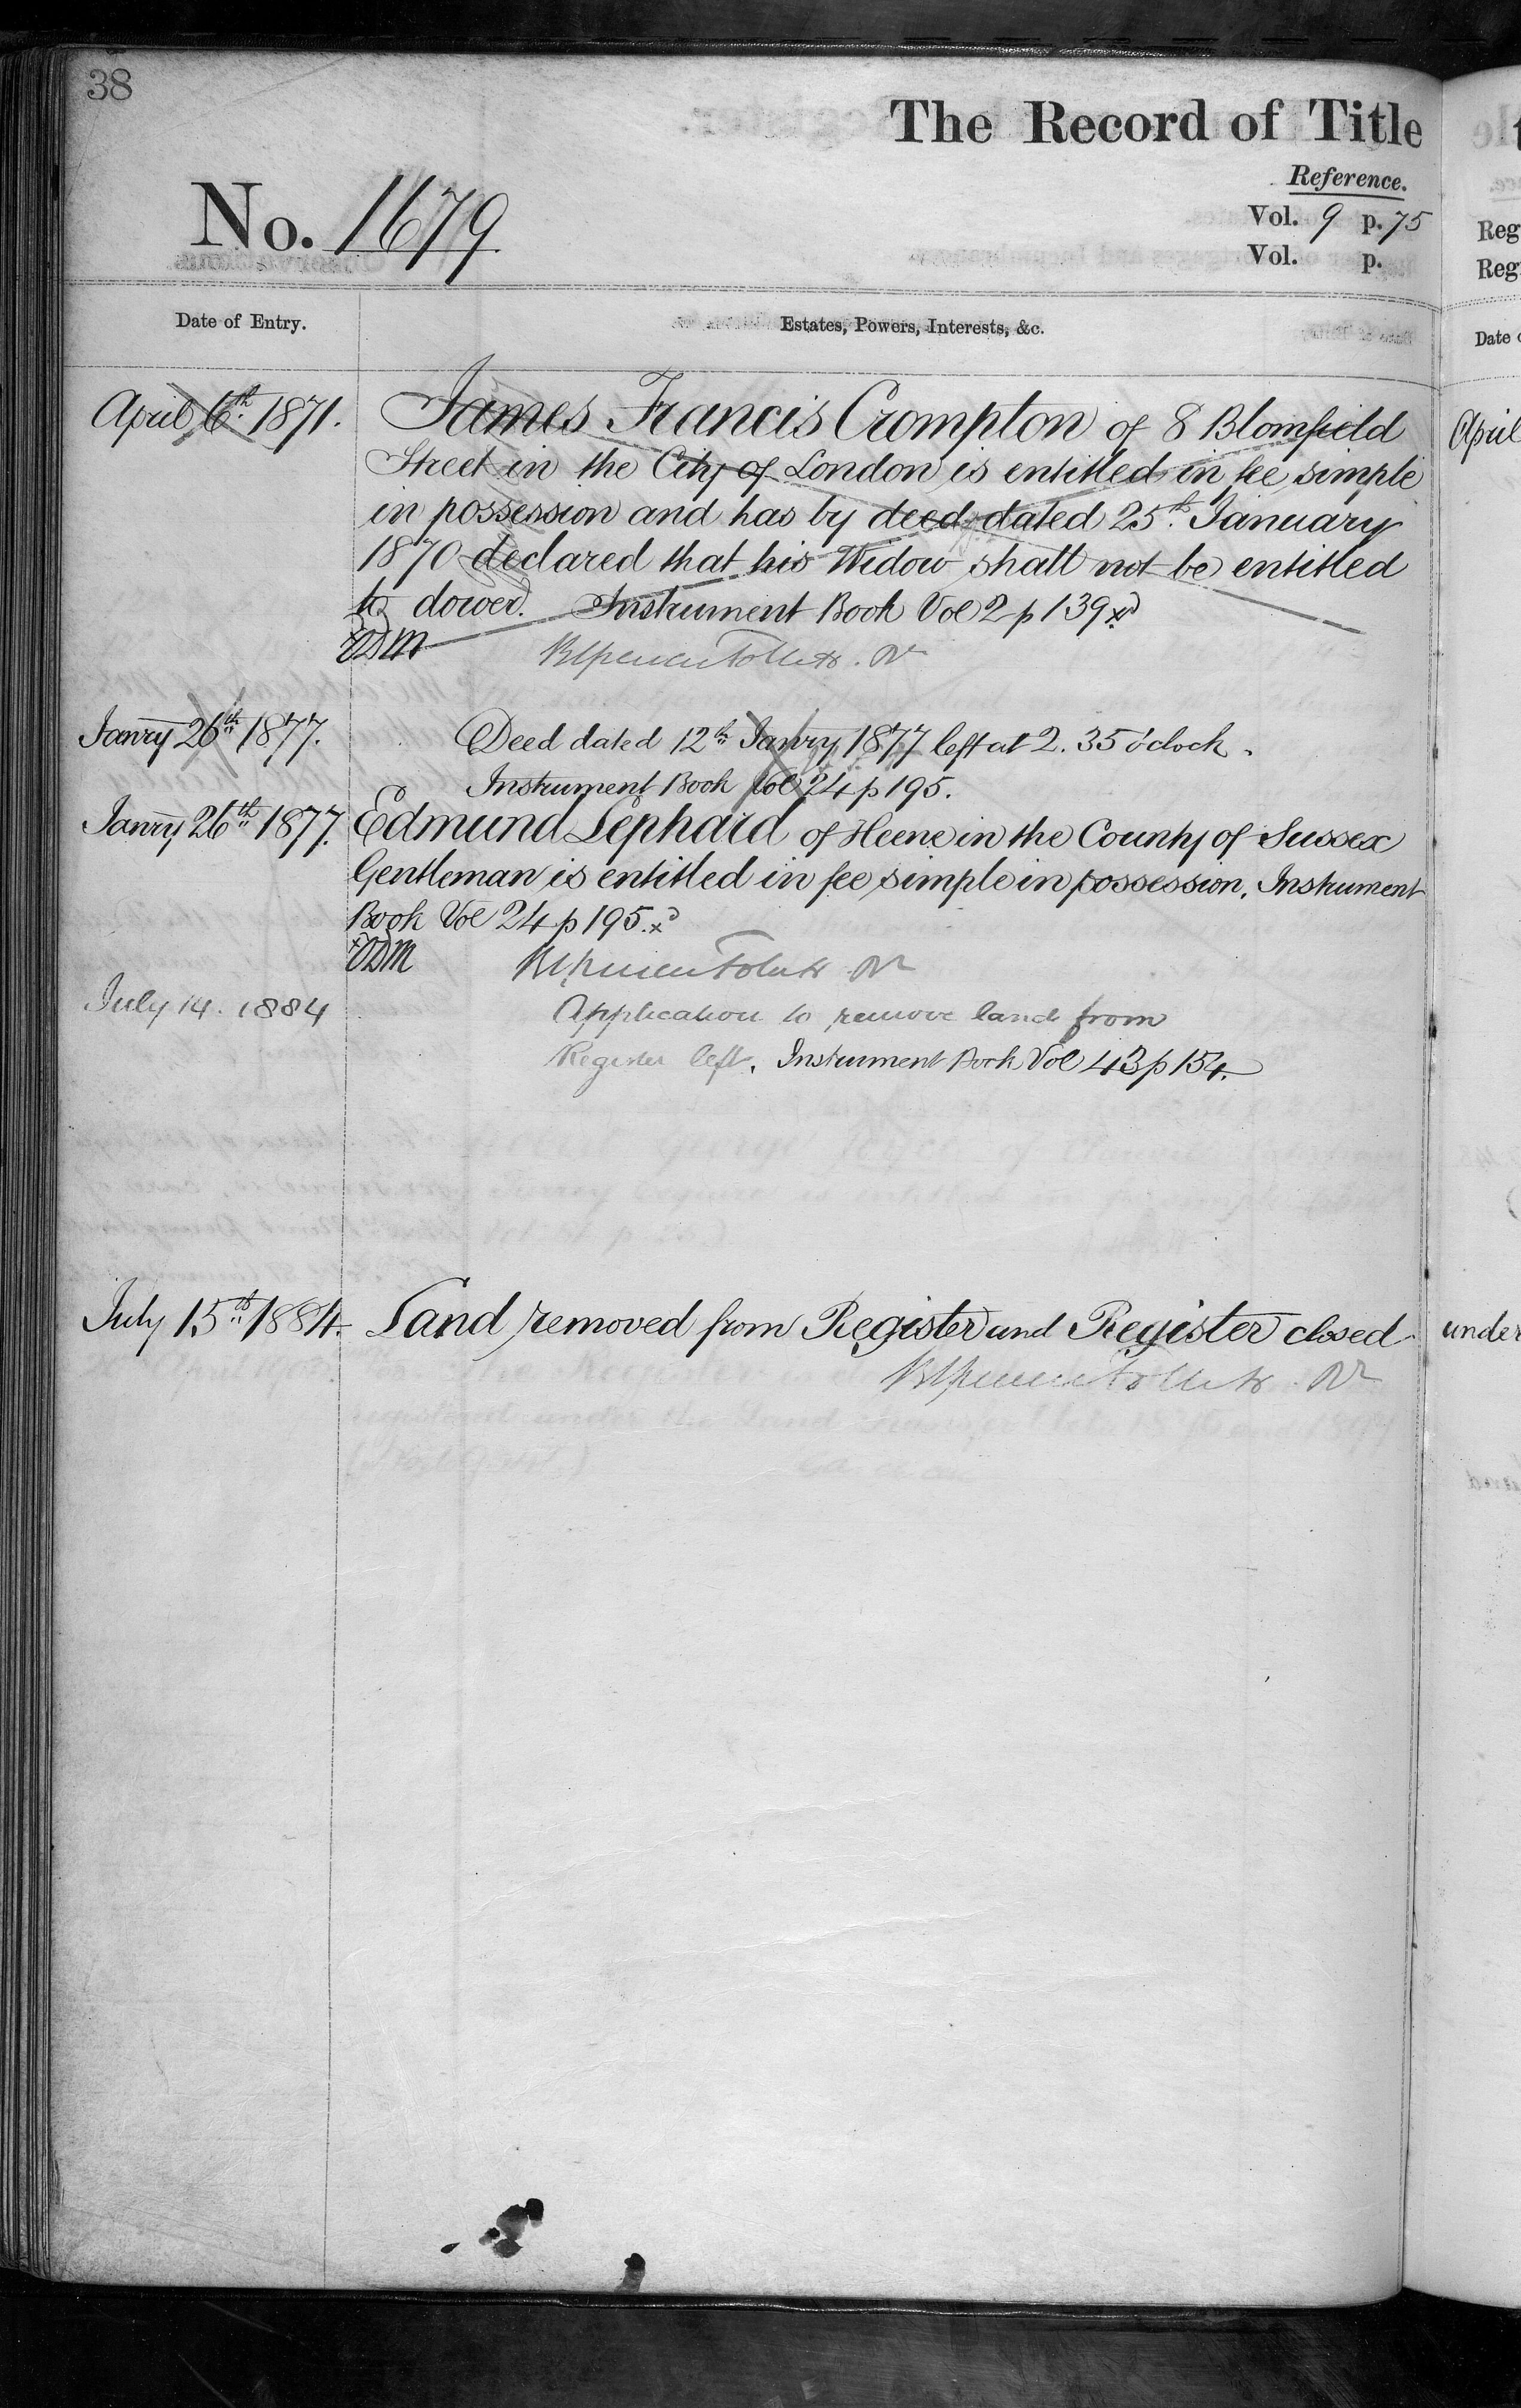 38
The Record of Title
Reference.
No. 1679
Vol. 9 p. 75
Vol. p.
Date of Entry.
Estates, Powers, Interests, &c.
April 6th 1871.
James Francis Crompton of 8 Blomfield
Street in the City of London is entitled in fee simple
in possession and has by deed dated 25th January
1870 declared that his Widow shall not be entitled
to dower. Instrument Book Vol 2 p 139
Janry 26th 1877.
Deed dated 12th Janry 1877 left at 2.35 o'clock.
Instrument Book Vol 24 p 195.
Janry 26th 1877.
Edmund Lephard of Heene in the County of Sussex
Gentleman is entitled in fee simple in possession. Instrument
Book Vol 24 p 195.
July 14. 1884
Application to remove land from
Register left. Instrument Book Vol 43 p 154.
July 15th 1884.
Land removed from Register and Register closed
Reg
Reg
Date
April
under